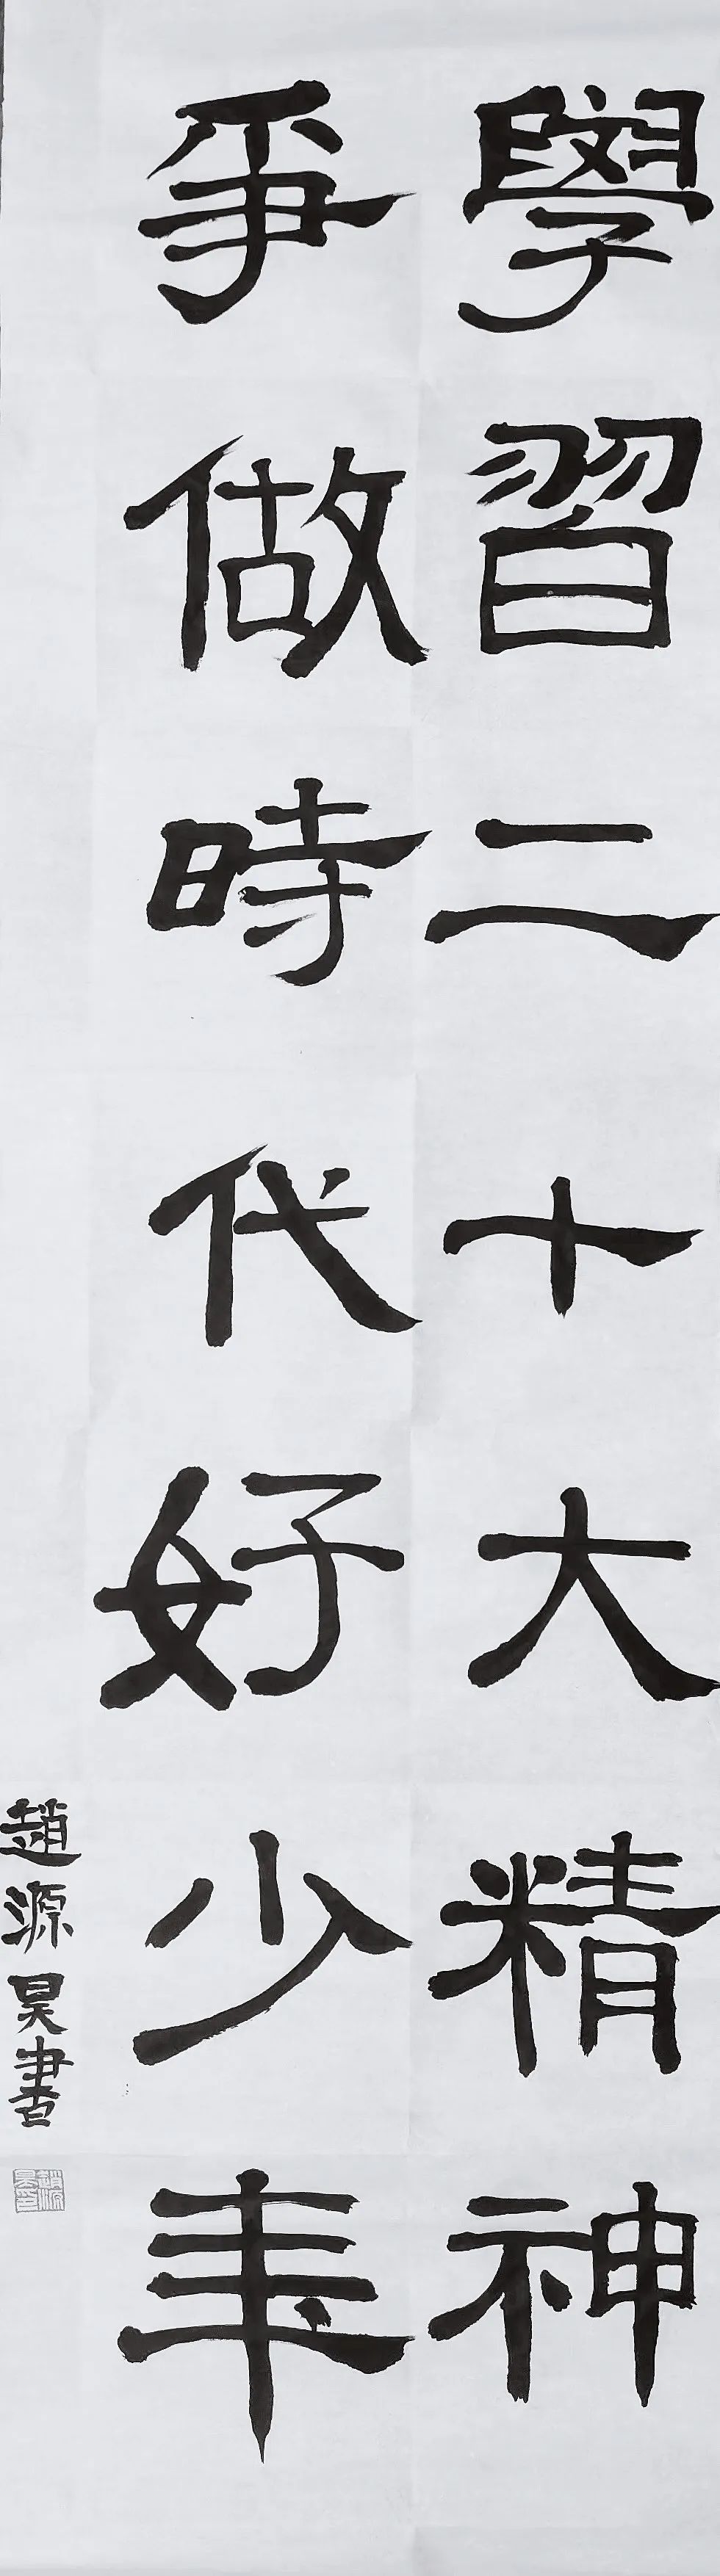 學習二十大精神
爭做時代好少年
趙源昊書